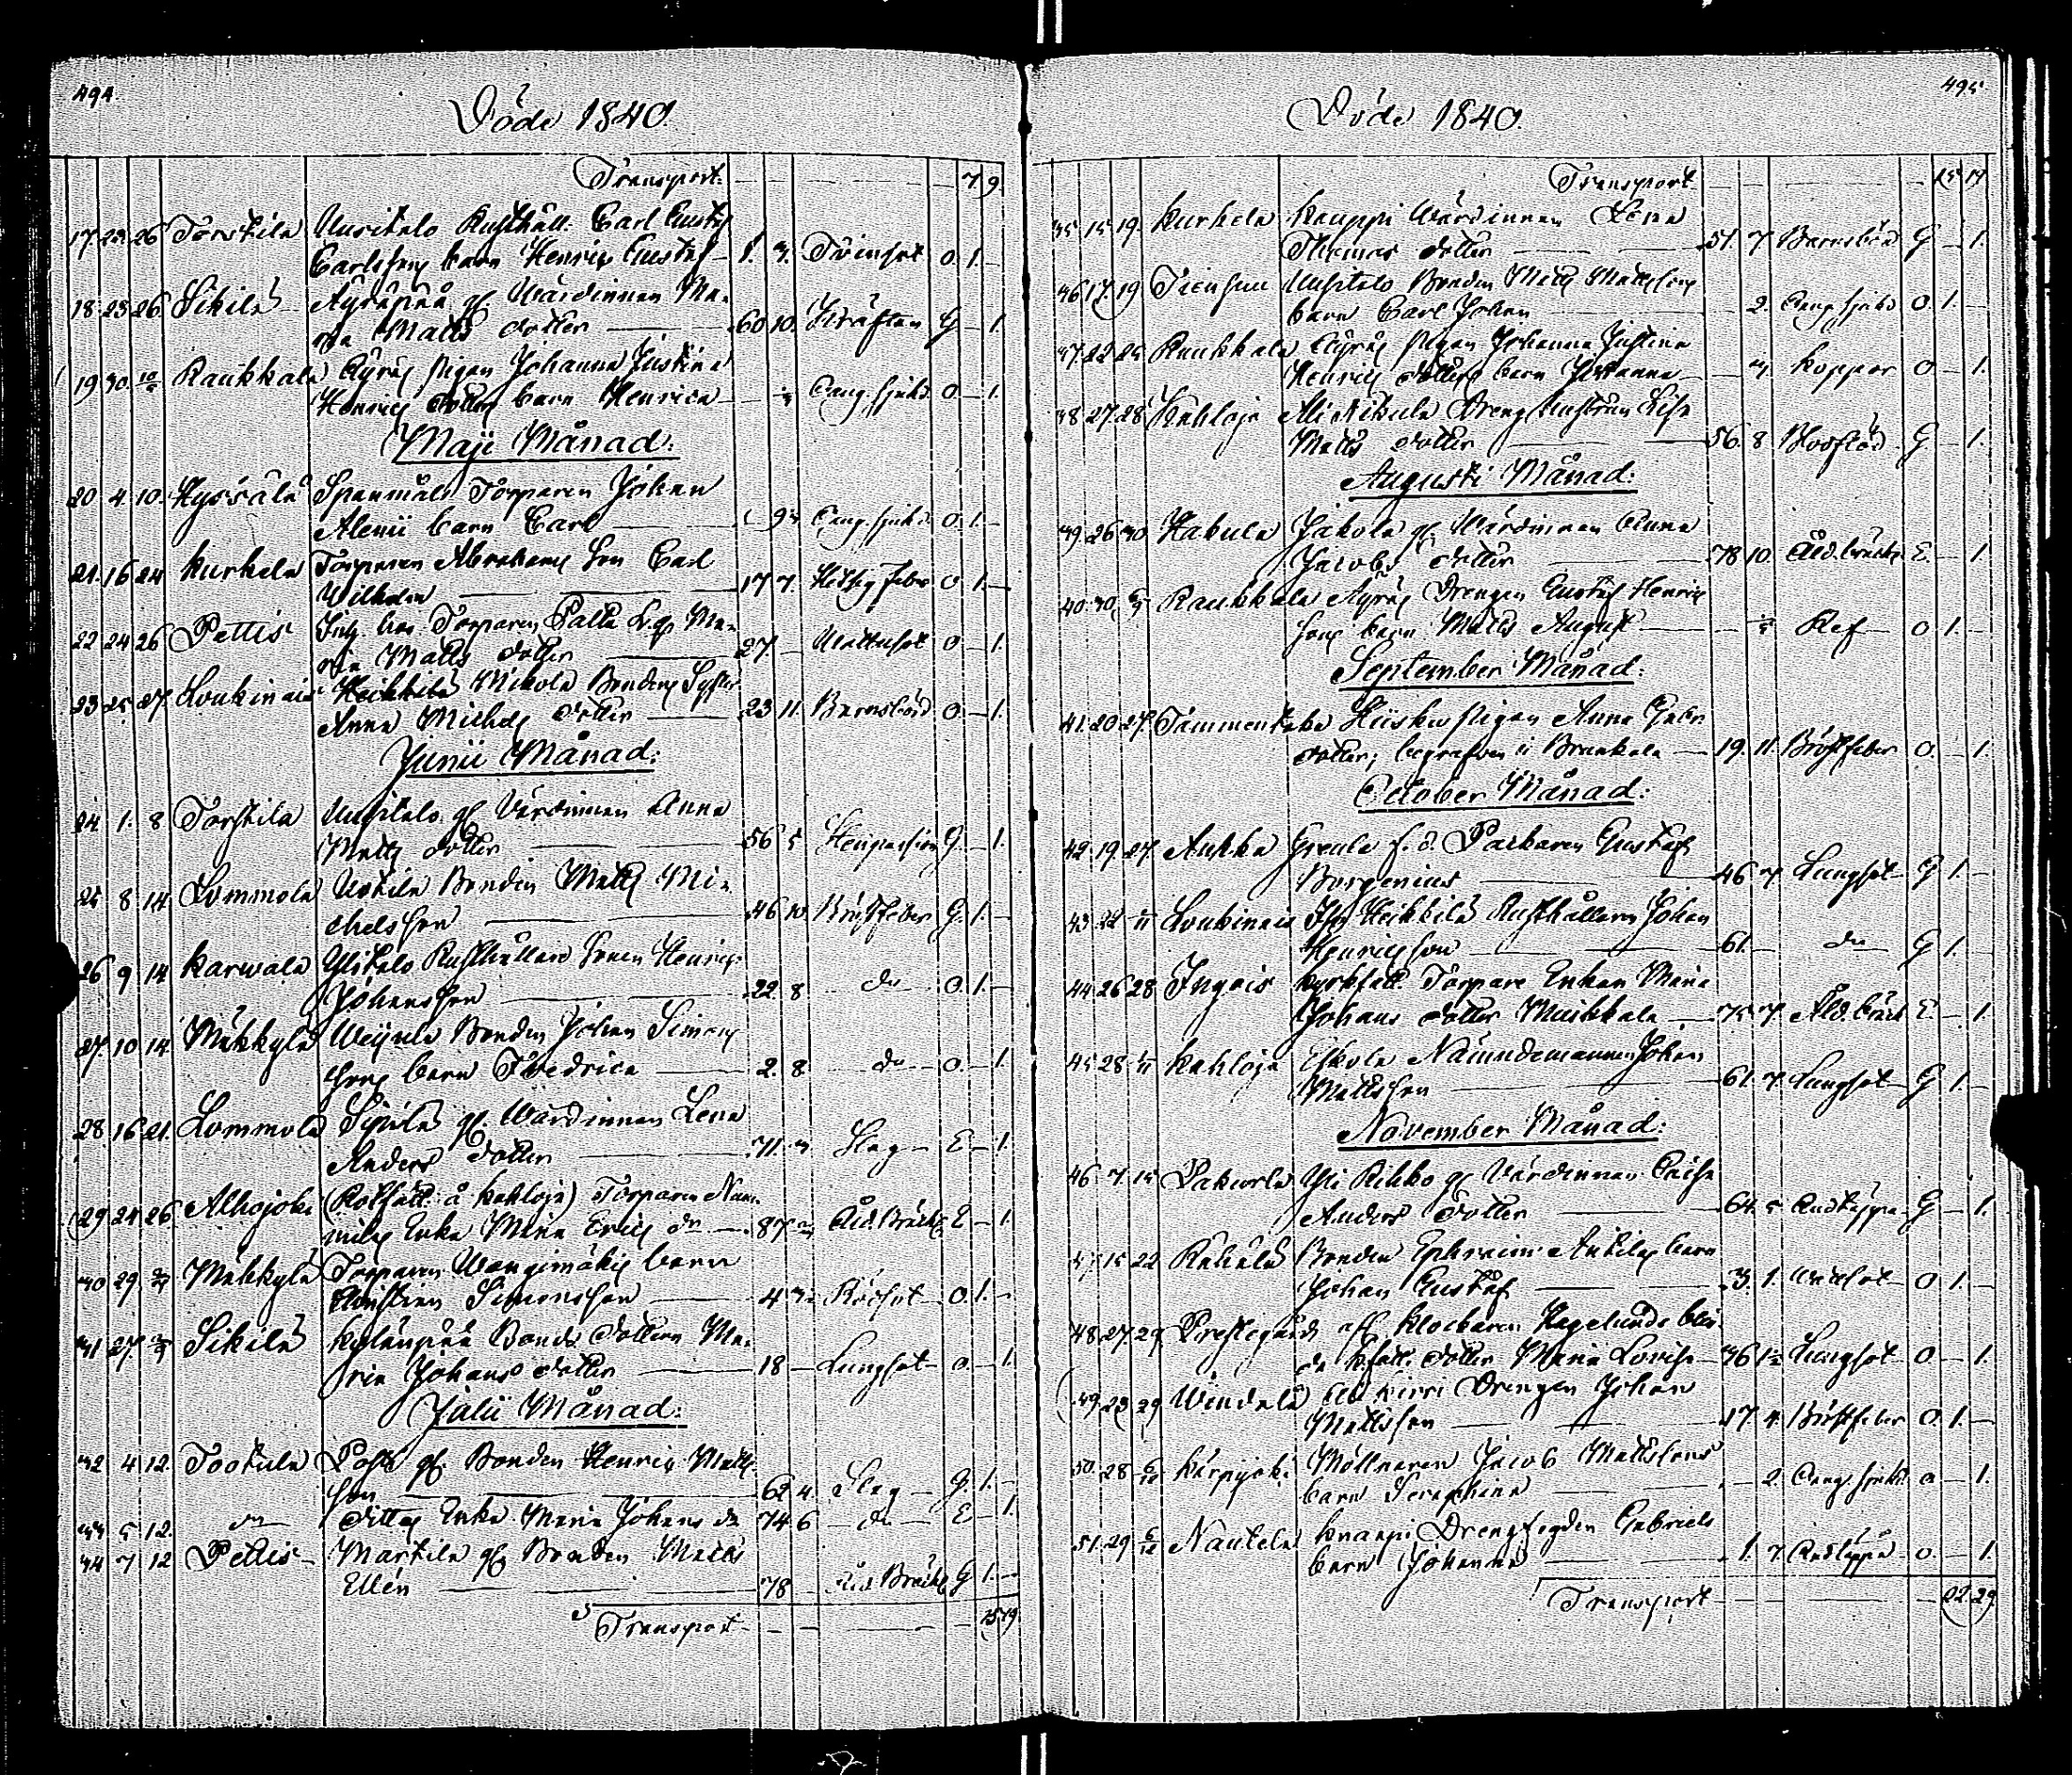 494.
Döde 1840.
Transport. 7. 9.
17. 23. 26 Torstila Uusitalo Rusthåll. Carl Gustaf
Carlssons barn Henric Gustaf 1. 3. Tvinsot O. 1. —
18. 23. 26 Sikilä Äyräpää gf. Wärdinnan Ma-
ria Matts dotter 60 10. Kräftan G — 1.
19 30. 10/5 Raukkala Äyräs Pigan Johanna Justina
Henrics dotters barn Henrica Bang sjuka O — 1.
Maji Månad.
20 4. 10. Hyrsälä Torparen Johan
Alenii barn Carl Bang sjuka O. 1. —
21. 16 24 Kurkela Torparen Abrahams Son Carl
Wilhelm 17 7. Hetsig feber O 1. —
22 24 26 Pettis Torparen Ma-
ria Matts dotter 27 — O — 1.
23 25. 27. Loukinais Heikkilä Nikola Bondens Syster
Anna Michels dotter 23 11. Barnsbörd O. — 1.
Junii Månad.
24 1. 8 Torstila Uusitalo gf. Värdinnan Anna
Matts dotter 56 5 G. — 1.
25 8 14 Lommola Uotila Bonden Matts Mi-
chelsson 46 10. Bröstfeber G. 1. —
26 9 14 Karwala Ylitalo Rusthållare Sonen Henric
Johansson 22. 8 do O. 1. —
27. 10 14 Mähkylä Bonden Johan Simons
sons barn Fredrica 2. 8. do O. — 1.
28. 16 21. Lommola Sipilä gf. Wärdinnan Lena
Anders dotter 71. 3 Slag — E — 1.
29 24 26. Alhojoki (Rotfatt. å Kahloja) Torparen
Enka Maria Erics dr 87 Åld. Bräckl. E — 1.
30 29. Mähkylä Torparen Wangimäkis barn
Christian Simonsson 4 Rödsot O. 1. —
31 27. Sikilä Kylänpää Bonde dottern Ma-
ria Johans dotter 18 — Lungsot O. — 1.
Julii Månad.
32 4 12. Tootula gf. Bonden Henric Matts
son 62 4. Slag — G. 1. —
33 5 12. do dittos Enka Maria Johans dr 74 6 do E — 1.
34 7 12 Pettis Marttila gf. Bonden Matts
Ellén 78 — Åld. Bräckl. G 1. —
Transport 15 19
495
Döde 1840.
Transport 15 19
35 15 19. Kurkela Kauppi Wärdinnan Lena
Thomas dotter 51. 7 Barnsbörd G — 1.
36 17. 19 Tiensuu Uusitalo Bonden Matts Mattssons
barn Carl Johan — 2. Bang sjuka O. 1. —
37. 22 25 Raukkala Äyräs Pigan Johanna Justina
Henrics dotters barn Johanna Koppor O — 1.
38 27. 28 Kahloja Ali Nikula Dreng Hustrun Lisa
Matts dotter 56. 8 Rosfeber G — 1.
Augusti Månad.
39 26 30 Hakula Jakola gf. Wärdinnan Anna
Jacobs dotter 78 10. Åld. bräckl. E. — 1
40. 30 Raukkala Äyräs Drengen Gustaf Henrics
sons barn Matts August Ref O 1. —
September Månad.
41. 20 27. Tammentaka Hiiska Pigan Anna Gabr.
dotter, begrafven i 19. 11. Bröstfeber O. — 1.
October Månad.
42. 19. 27. Aukka Greula f. d. Parkaren Gustaf
Borgenius 46 7 Lungsot — G 1. —
43 22 Loukinais Heikkilä Rusthållaren Johan
Henricsson 61. — do G 1. —
44 26 28 Ingois kyrkfatt. Torpare Enkan Maria
Johans dotter Muikkala 75 7. Åld. bräckl E — 1.
45 28 Kahloja Eskola Nämndemannen Johan
Mattsson 61. 7. Lungsot — G 1. —
November Månad.
46 7. 15 Pakurla Yli Rikko gf. Värdinnan Caisa
Anders dotter 64. 5 Andtäppa — G — 1.
47 15 22 Rahala Bonden Ephraim Anttilas barn
Johan Gustaf 3. 1. O 1. —
48 27. 29. Prestegårds aff. Klockaren Hagelunds blin-
da k.fatt. dotter Maria Lovisa 36 Lungsot O. — 1.
49. 23 29 Wendelä Ali Kirri Drengen Johan
Mattsson 17. 4. Bröstfeber O. 1. —
50. 28 6/12 Karppijoki Möllnaren Jacob Mattssons
barn Seraphina — 2. Bang. sjuka O — 1.
51. 29 6/12 Nautela Knaapi Drengfogden Gabriels
barn Johanna 1. 7. Andtäppa O. — 1.
Transport 22 29.